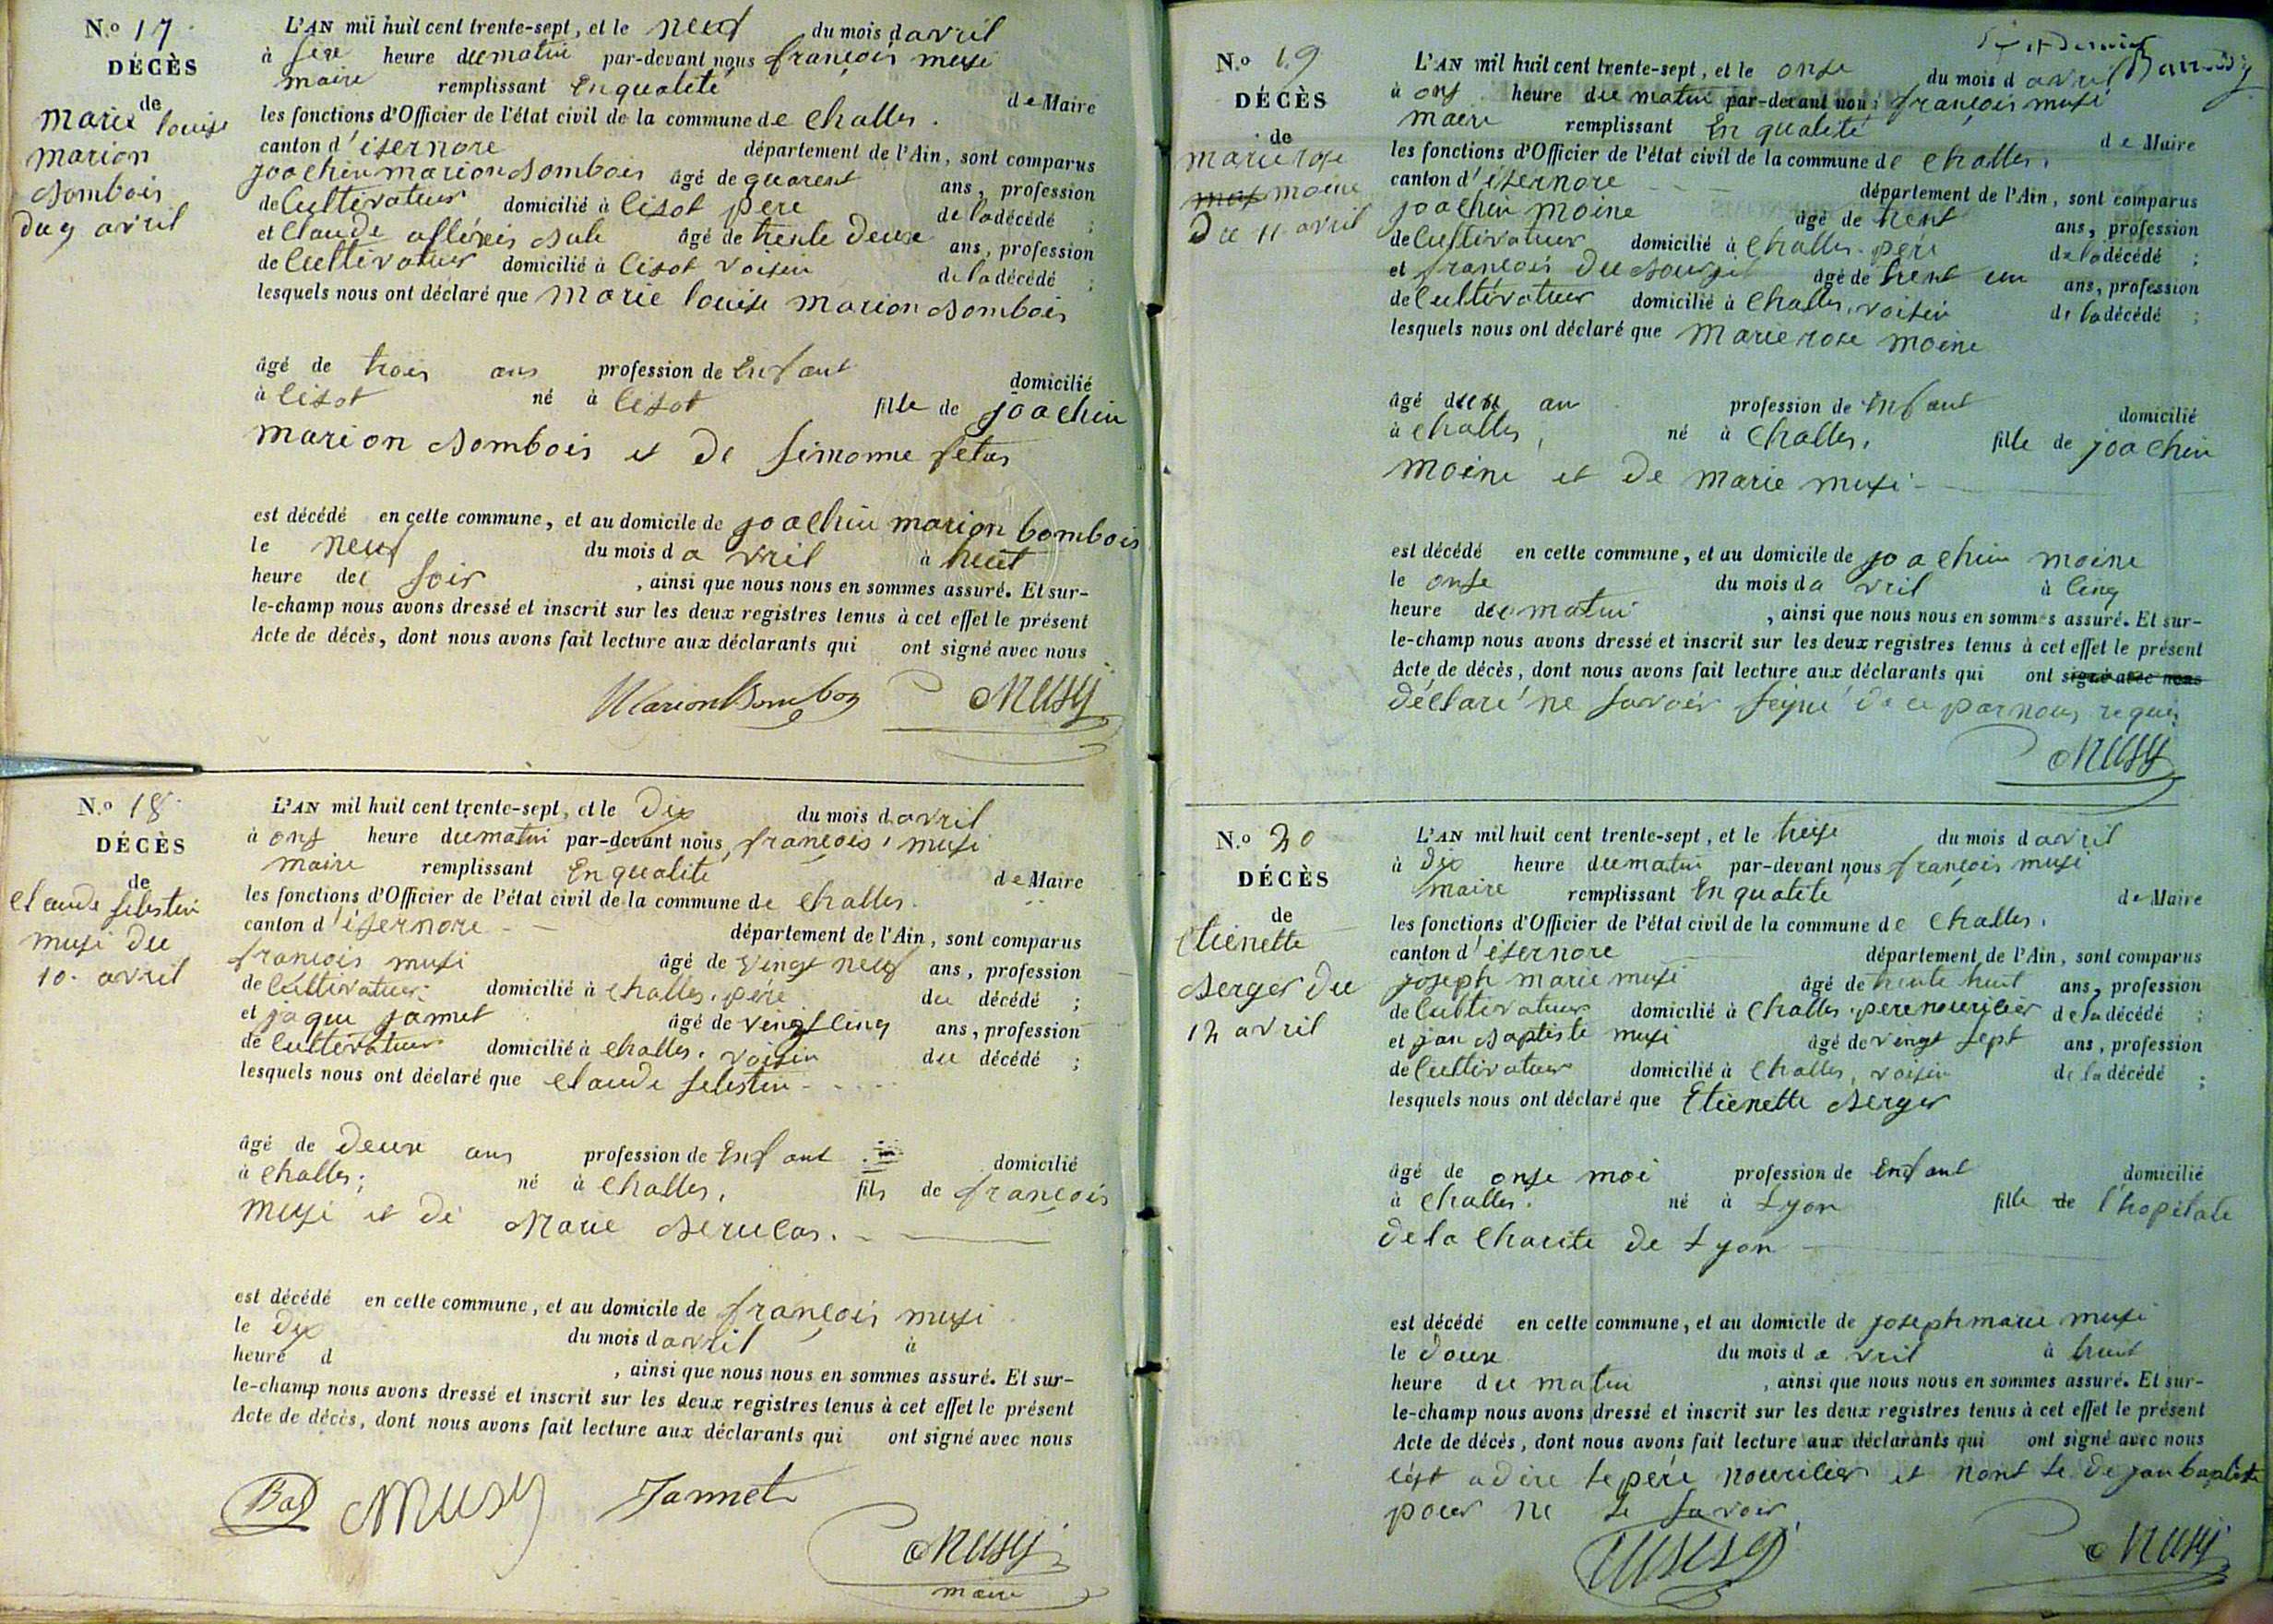 N.o 17
DÉCÈS
de
marie louise
marion
bombois
du 9 avril
L'AN mil huit cent trente-sept, et le neuf du mois d avril
à heure du matin par-devant nous françois musi
maire remplissant En qualité de Maire
les fonctions d'Officier de l'état civil de la commune de Challes.
canton d'isernore département de l'Ain, sont comparus
joachin marion bombois âgé de quarent ans, profession
de Cultivateur domicilié à Cisot pere de la décédé ;
et Claude âgé de trente deux ans, profession
de Cultivateur domicilié à Cisot voisin de la décédé ;
lesquels nous ont déclaré que Marie louise marion bombois
âgé de trois ans profession de Enfant domicilié
à Cisot né à Cisot fille de joachin
marion bombois et de simonne
est décédé en cette commune, et au domicile de joachin marion bombois
le neuf du mois d avril à huit
heure de soir , ainsi que nous nous en sommes assuré. Et sur-
le-champ nous avons dressé et inscrit sur les deux registres tenus à cet effet le présent
Acte de décès, dont nous avons fait lecture aux déclarants qui ont signé avec nous
Marion Bomboy Musy
N.o 18
DÉCÈS
de
Claude selestin
musi du
10 avril
L'AN mil huit cent trente-sept, et le Dix du mois d avril
à ons heure du matin par-devant nous, françois musi
maire remplissant En qualité de Maire
les fonctions d'Officier de l'état civil de la commune de Challes.
canton d'isernore département de l'Ain, sont comparus
françois musi âgé de vingt neuf ans, profession
de Cultivateur domicilié à Challes. père du décédé ;
et jaque jamet âgé de vingt cinq ans, profession
de Cultivateur domicilié à Challes. voisin du décédé ;
lesquels nous ont déclaré que Claude selestin
âgé de Deux ans profession de Enfant domicilié
à Challes; né à Challes, fils de françois
musi et de Marie
est décédé en cette commune, et au domicile de françois musi
le Dix du mois d avril à
heure d , ainsi que nous nous en sommes assuré. Et sur-
le-champ nous avons dressé et inscrit sur les deux registres tenus à cet effet le présent
Acte de décès, dont nous avons fait lecture aux déclarants qui ont signé avec nous
Musy Jannet
Musy
maire
N.o 19
DÉCÈS
de
marie rose
moine
Du 11 avril
L'AN mil huit cent trente-sept, et le onse du mois d avril
à ons heure du matin par-devant nous françois musi
maire remplissant En qualité de Maire
les fonctions d'Officier de l'état civil de la commune de Challes.
canton d'isernore département de l'Ain, sont comparus
joachin moine âgé de trent ans, profession
de Cultivateur domicilié à Challes. pere de la décédé ;
et françois âgé de trent un ans, profession
de Cultivateur domicilié à Challes, voisin de la décédé ;
lesquels nous ont déclaré que Marie rose moine
âgé an profession de Enfant domicilié
à Challes, né à Challes, fille de joachin
moine et de marie musi
est décédé en cette commune, et au domicile de joachin moine
le onse du mois d avril à cinq
heure du matin , ainsi que nous nous en sommes assuré. Et sur-
le-champ nous avons dressé et inscrit sur les deux registres tenus à cet effet le présent
Acte de décès, dont nous avons fait lecture aux déclarants qui ont signé avec nous
déclaré ne savoir signé de ce par nous requis
Musy
N.o 20
DÉCÈS
de
Etienette
berger du
12 avril
L'AN mil huit cent trente-sept, et le treise du mois d avril
à dix heure du matin par-devant nous françois musi
maire remplissant En qualité de Maire
les fonctions d'Officier de l'état civil de la commune de Challes.
canton d'isernore département de l'Ain, sont comparus
joseph marie musi âgé de trente huit ans, profession
de Cultivateur domicilié à Challes. pere nouricier de la décédé ;
et jan baptiste musi âgé de vingt sept ans, profession
de Cultivateur domicilié à Challes, voisin de la décédé ;
lesquels nous ont déclaré que Etienette berger
âgé de onse moi profession de Enfant domicilié
à Challes. né à Lyon fille de l'hopitale
de la Charité de Lyon
est décédé en cette commune, et au domicile de joseph marie musi
le douse du mois d avril à huit
heure du matin , ainsi que nous nous en sommes assuré. Et sur-
le-champ nous avons dressé et inscrit sur les deux registres tenus à cet effet le présent
Acte de décès, dont nous avons fait lecture aux déclarants qui ont signé avec nous
cést adire le père nouricier et nont le de jan baptiste
pour ne le savoir.
Musy